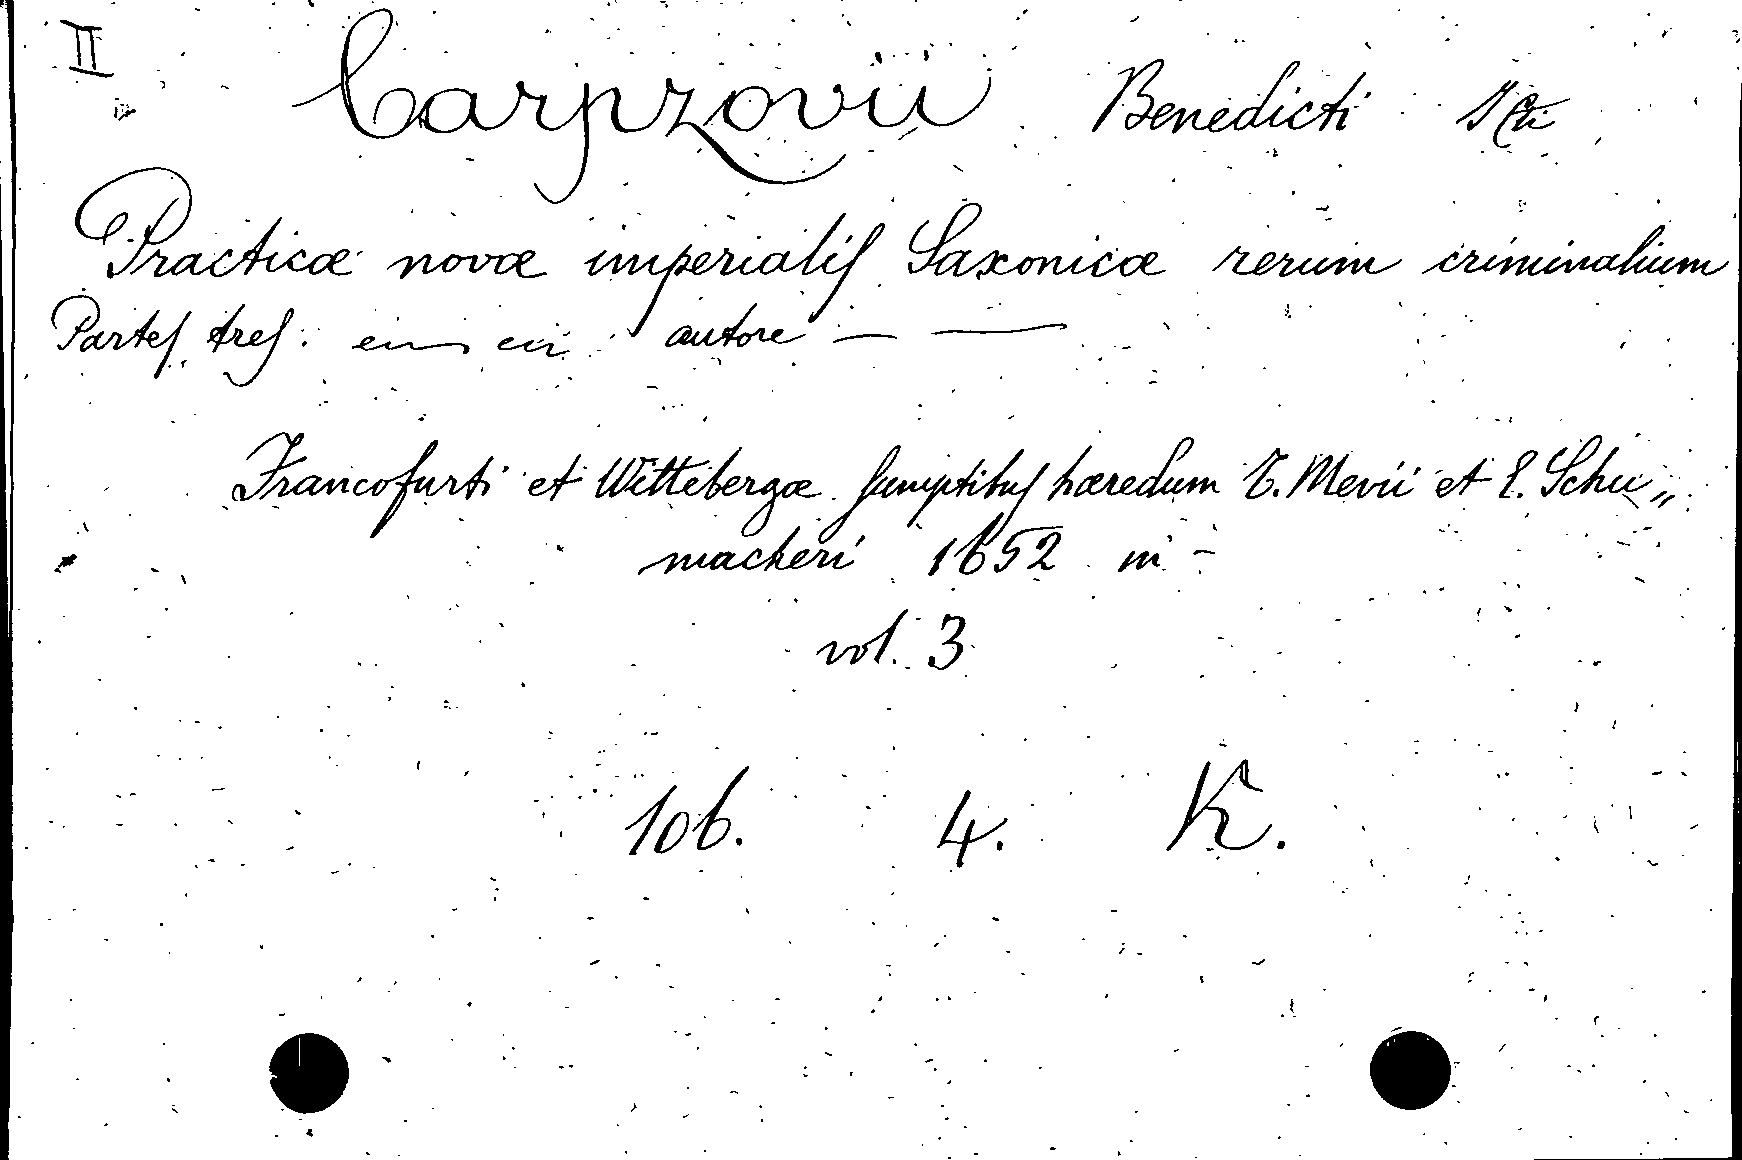 II
Carpzovii Benedicti ICti
Practicæ novæ imperialis Saxonicæ rerum criminalium
Partes tres. autore — —
Francofurti et Wittebergæ sumptibus hæredum T. Mevii et E. Schu„
macheri 1652 in -
vol. 3
106. 4. K.